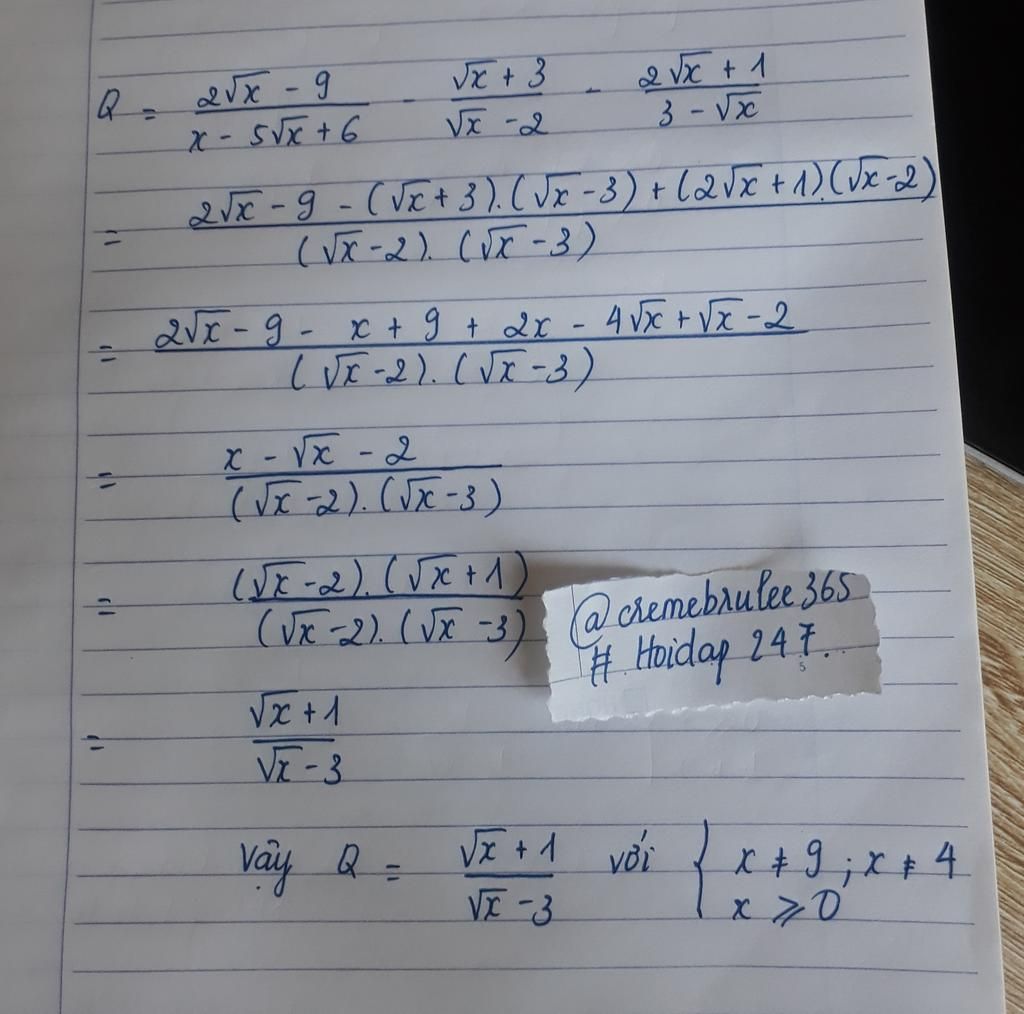 Q = (2√x - 9)/(x - 5√x + 6) - (√x + 3)/(√x - 2) - (2√x + 1)/(3 - √x)
= (2√x - 9 - (√x + 3).(√x - 3) + (2√x + 1).(√x - 2))/((√x - 2).(√x - 3))
= (2√x - 9 - x + 9 + 2x - 4√x + √x - 2)/((√x - 2).(√x - 3))
= (x - √x - 2)/((√x - 2).(√x - 3))
= ((√x - 2).(√x + 1))/((√x - 2).(√x - 3))
@cremebrulee365
# Hoidap 247..
= (√x + 1)/(√x - 3)
Vậy Q = (√x + 1)/(√x - 3) với { x ≠ 9 ; x ≠ 4
x ⩾ 0